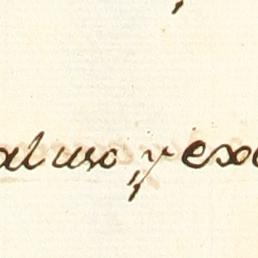 al uso, y exe